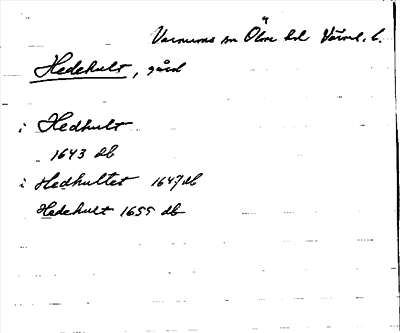 Varnums sn Ölme hd Värml. l.
Hedekult, gård
i Hedhult
1643 db
i Hedhultet 1647 db
Hedehult 1655 db